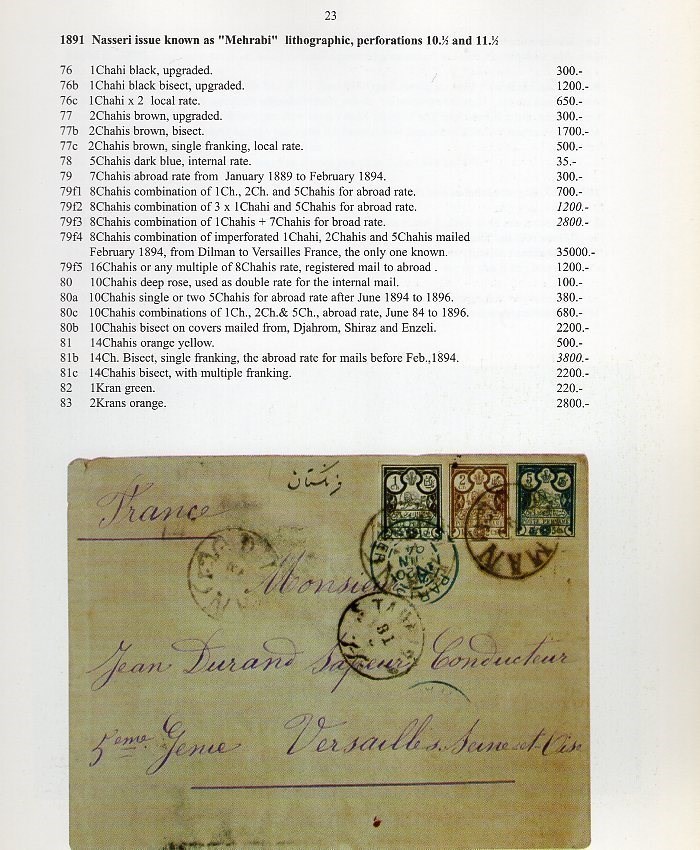 23
1891 Nasseri issue known as "Mehrabi" lithographic, perforations 10.½ and 11.½
76 1Chahi black, upgraded. 300.-
76b 1Chahi black bisect, upgraded. 1200.-
76c 1Chahi x 2 local rate. 650.-
77 2Chahis brown, upgraded. 300.-
77b 2Chahis brown, bisect. 1700.-
77c 2Chahis brown, single franking, local rate. 500.-
78 5Chahis dark blue, internal rate. 35.-
79 7Chahis abroad rate from January 1889 to February 1894. 300.-
79f1 8Chahis combination of 1Ch., 2Ch. and 5Chahis for abroad rate. 700.-
79f2 8Chahis combination of 3 x 1Chahi and 5Chahis for abroad rate. 1200.-
79f3 8Chahis combination of 1Chahis + 7Chahis for broad rate. 2800.-
79f4 8Chahis combination of imperforated 1Chahi, 2Chahis and 5Chahis mailed
February 1894, from Dilman to Versailles France, the only one known. 35000.-
79f5 16Chahis or any multiple of 8Chahis rate, registered mail to abroad . 1200.-
80 10Chahis deep rose, used as double rate for the internal mail. 100.-
80a 10Chahis single or two 5Chahis for abroad rate after June 1894 to 1896. 380.-
80c 10Chahis combinations of 1Ch., 2Ch.& 5Ch., abroad rate, June 84 to 1896. 680.-
80b 10Chahis bisect on covers mailed from, Djahrom, Shiraz and Enzeli. 2200.-
81 14Chahis orange yellow. 500.-
81b 14Ch. Bisect, single franking, the abroad rate for mails before Feb.,1894. 3800.-
81c 14Chahis bisect, with multiple franking. 2200.-
82 1Kran green. 220.-
83 2Krans orange. 2800.-
فرنگستان
1 2 5
France
Monsieur
Jean Durand Sapeur Conducteur
5eme Genie Versailles. Seine et Oise